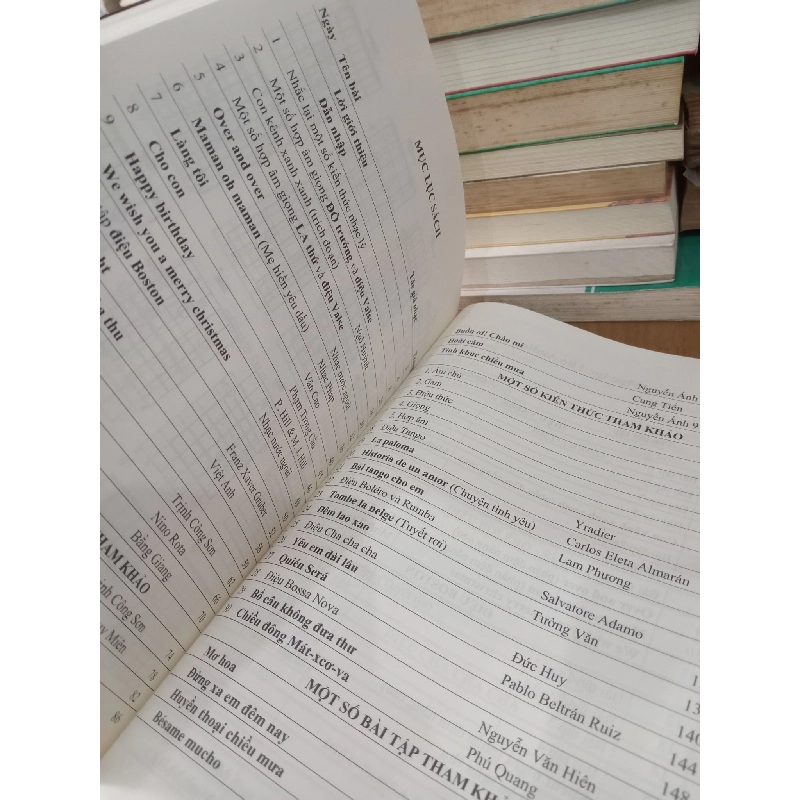 MỤC LỤC SÁCH
Ngày Tên bài
Lời giới thiệu
Dẫn nhập
1 Nhắc lại một số kiến thức nhạc lý
2 Một số hợp âm giọng ĐÔ trưởng và điệu Valse
3 Con kênh xanh xanh (trích đoạn) Ngô Huỳnh
4 Một số hợp âm giọng LA thứ và điệu Valse
5 Over and over Nhạc nước ngoài
6 Maman oh maman (Mẹ hiền yêu dấu) Nhạc Pháp
7 Làng tôi Văn Cao
8 Cho con Phạm Trọng Cầu
9 Happy birthday P. Hill & M. J. Hill
We wish you a merry christmas Nhạc nước ngoài
điệu Boston
Franz Xaver Gruber
thu Việt Anh
Trịnh Công Sơn
Nino Rota
Bằng Giang
THAM KHẢO
Trịnh Công Sơn
Miên
Buồn ơi! Chào mi Nguyễn Ánh
Hoài cảm Cung Tiến
Tình khúc chiều mưa Nguyễn Ánh 9
MỘT SỐ KIẾN THỨC THAM KHẢO
1. Âm chủ
2. Gam
3. Điệu thức
4. Giọng
5. Hợp âm
Điệu Tango
La paloma Yradier
Historia de un amor (Chuyện tình yêu) Carlos Eleta Almarán
Bài tango cho em Lam Phương
Điệu Boléro và Rumba
Tombe la neige (Tuyết rơi) Salvatore Adamo
Đêm lao xao Tường Văn
Điệu Cha cha cha
Yêu em dài lâu Đức Huy
Quién Será Pablo Beltrán Ruiz
Điệu Bossa Nova
Bồ câu không đưa thư Nguyễn Văn Hiên 144
Chiều đông Mát-xcơ-va Phú Quang 148
MỘT SỐ BÀI TẬP THAM KHẢO
Mơ hoa
Đừng xa em đêm nay
Huyền thoại chiều mưa
Bésame mucho